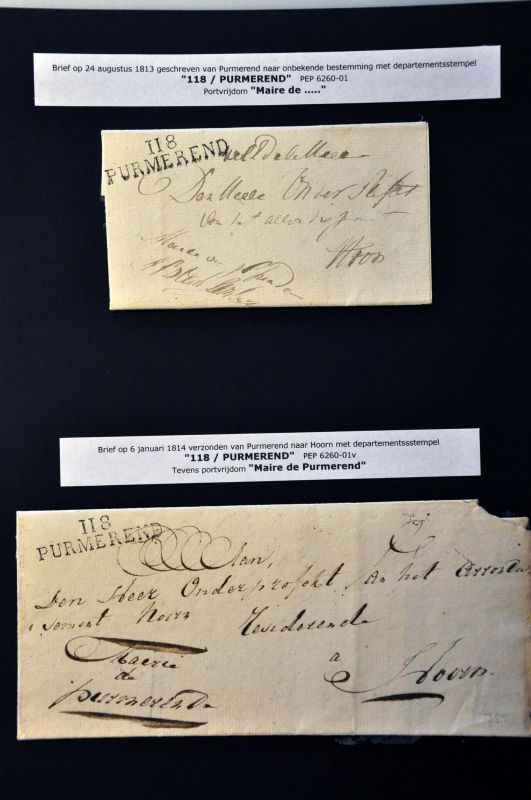 Brief op 24 augustus 1813 geschreven van Purmerend naar onbekende bestemming met departementsstempel
"118 / PURMEREND" PEP 6260-01
Portvrijdom "Maire de ....."
118
PURMEREND
Den Heere Onder
Van het
Hoorn
Brief op 6 januari 1814 verzonden van Purmerend naar Hoorn met departementssstempel
"118 / PURMEREND" PEP 6260-01v
Tevens portvrijdom "Maire de Purmerend"
118
PURMEREND
Aan,
Den Heer Onderprefekt An het Arronde
sement Hoorn Residerende
Maerie a Hoorn.
de
purmerende